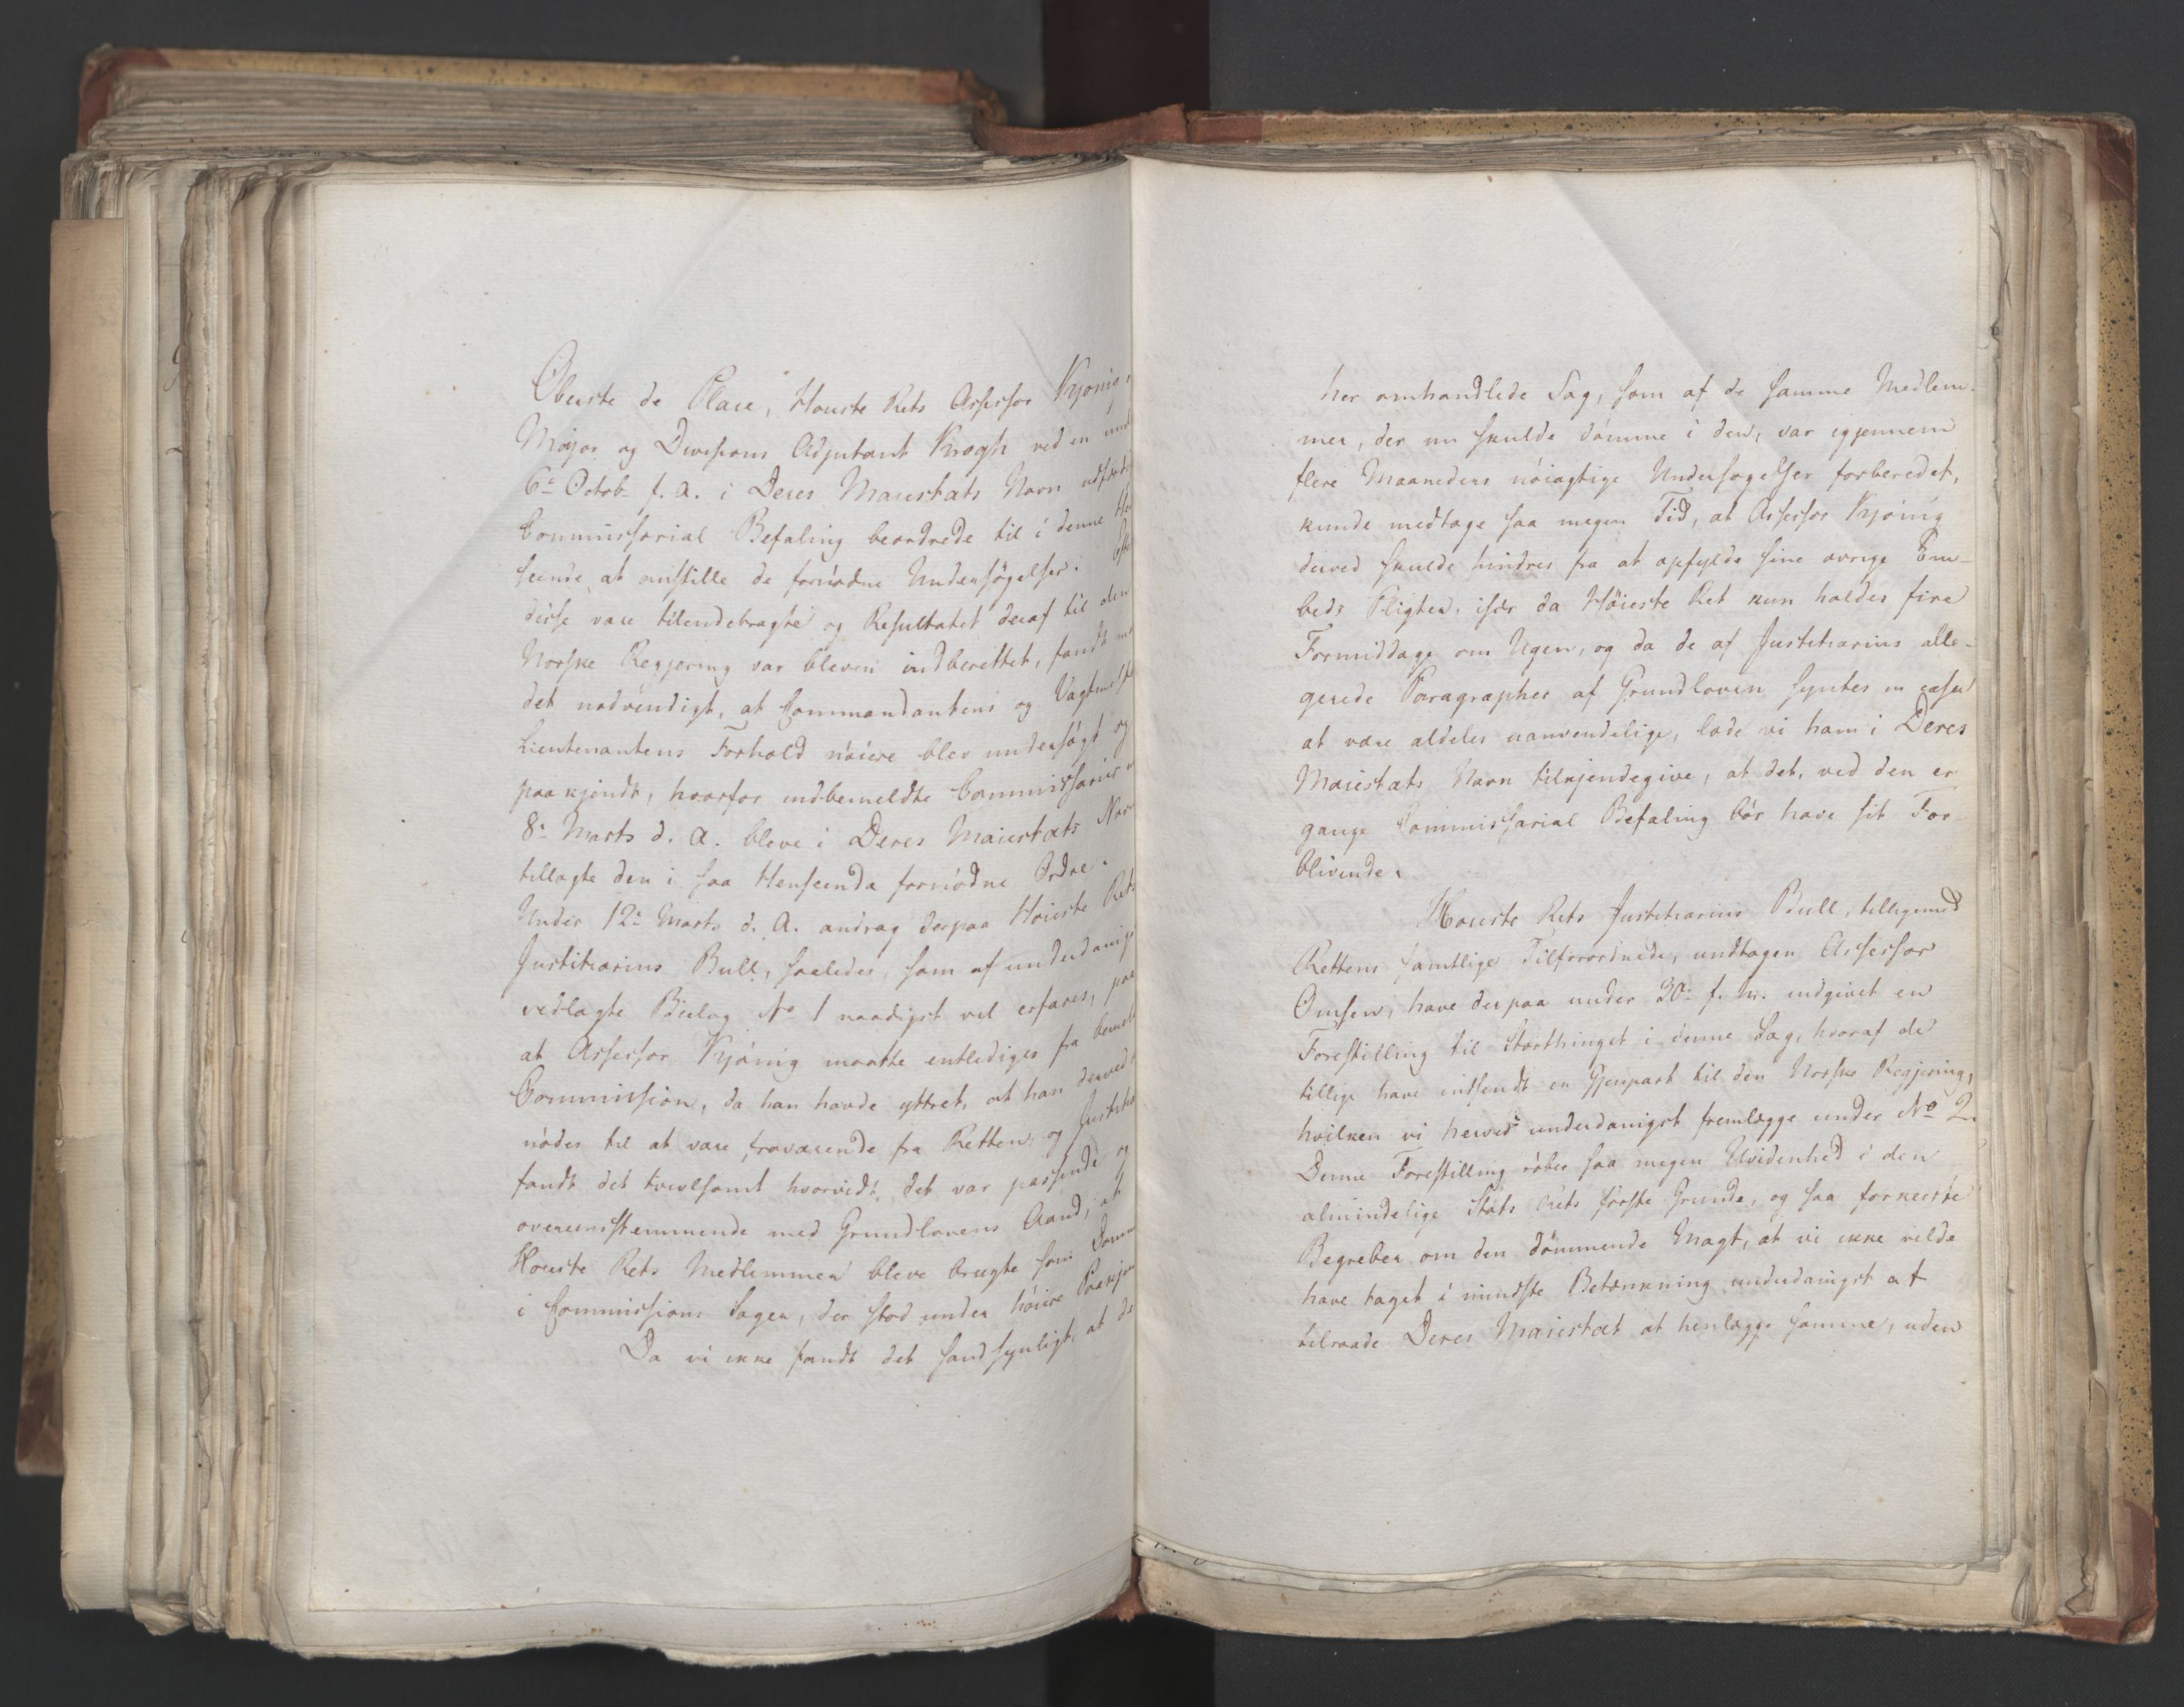 Oberste de Place, Høieste Rets Assessor Kjønig,
Major og Divisions Adjutant Krogh ved en und
6te Octob. f. A. i Deres Maiestæts Navn udfærd
Commissarial Befaling beordrede til i denne Hen
seende at anstille de fornødne Undersøgelser. Efter
disse vare tilendebragte og Resultatet deraf til den
Norske Regjering var bleven indberettet, fandt
det nødvendigt, at Commandantens og Vagtmest
Lieutenantens Forhold nøiere blev undersøgt og
paakjendt, hvorfor indbemeldte Commissarier
8de Marts d. A. bleve i Deres Maiestæts Nav
tillagte den i saa Henseende fornødne Ordre.
Under 12te Marts d. A. androg derpaa Høieste Rets
Justitiarius Bull, saaledes, som af underdanigst
vedlagte Bielag No 1 naadigst vil erfares, paa
at Assessor Kjønig maatte entlediges fra bemeldt
Commission, da han havde yttret, at han derved
nødes til at være fraværende fra Retten, og Justitia
fandt det tvivlsomt hvorvidt det var passende og
overeensstemmende med Grundlovens Aand, at
Høieste Rets Medlemmer bleve brugte som Domm
i Commissions Sager, der stod under høiere Paakjen
Da vi ikke fandt det sandsynligt, at de
her omhandlede Sag, som af de samme Medlem-
mer, der nu skulde dømme i den, var igjennem
flere Maaneders nøiagtige Undersøgelser forberedet,
kunde medtage saa megen Tid, at Assessor Kjønig
derved skulde hindres fra at opfylde sine øvrige Em-
beds Pligter, især da Høieste Ret kun holdes fire
Formiddage om Ugen, og da de af Justitiarius alle-
gerede Paragrapher af Grundloven syntes in casu
at være aldeles uanvendelige, lode vi ham i Deres
Maiestæts Navn tilkjendegive, at det, ved den er
gangne Commissarial Befaling bør have sit For-
blivende.
Høieste Rets Justitiarius Bull, tilligemed
Rettens samtlige Tilforordnede, undtagen Assessor
Omsen, have derpaa under 30te f. M. indgivet en
Forestilling til Storthinget i denne Sag, hvoraf de
tillige have indsendt en Gjenpart til den Norske Regjering,
hvilken vi herved underdanigst fremlægge under No 2.
Denne Forestilling røber saa megen Uvidenhed i den
almindelige Stats Rets første Grunde, og saa forkeerte
Begreber om den dømmende Magt, at vi ikke vilde
have taget i mindste Betænkning underdanigst at
tilraade Deres Maiestæt at henlægge samme, uden